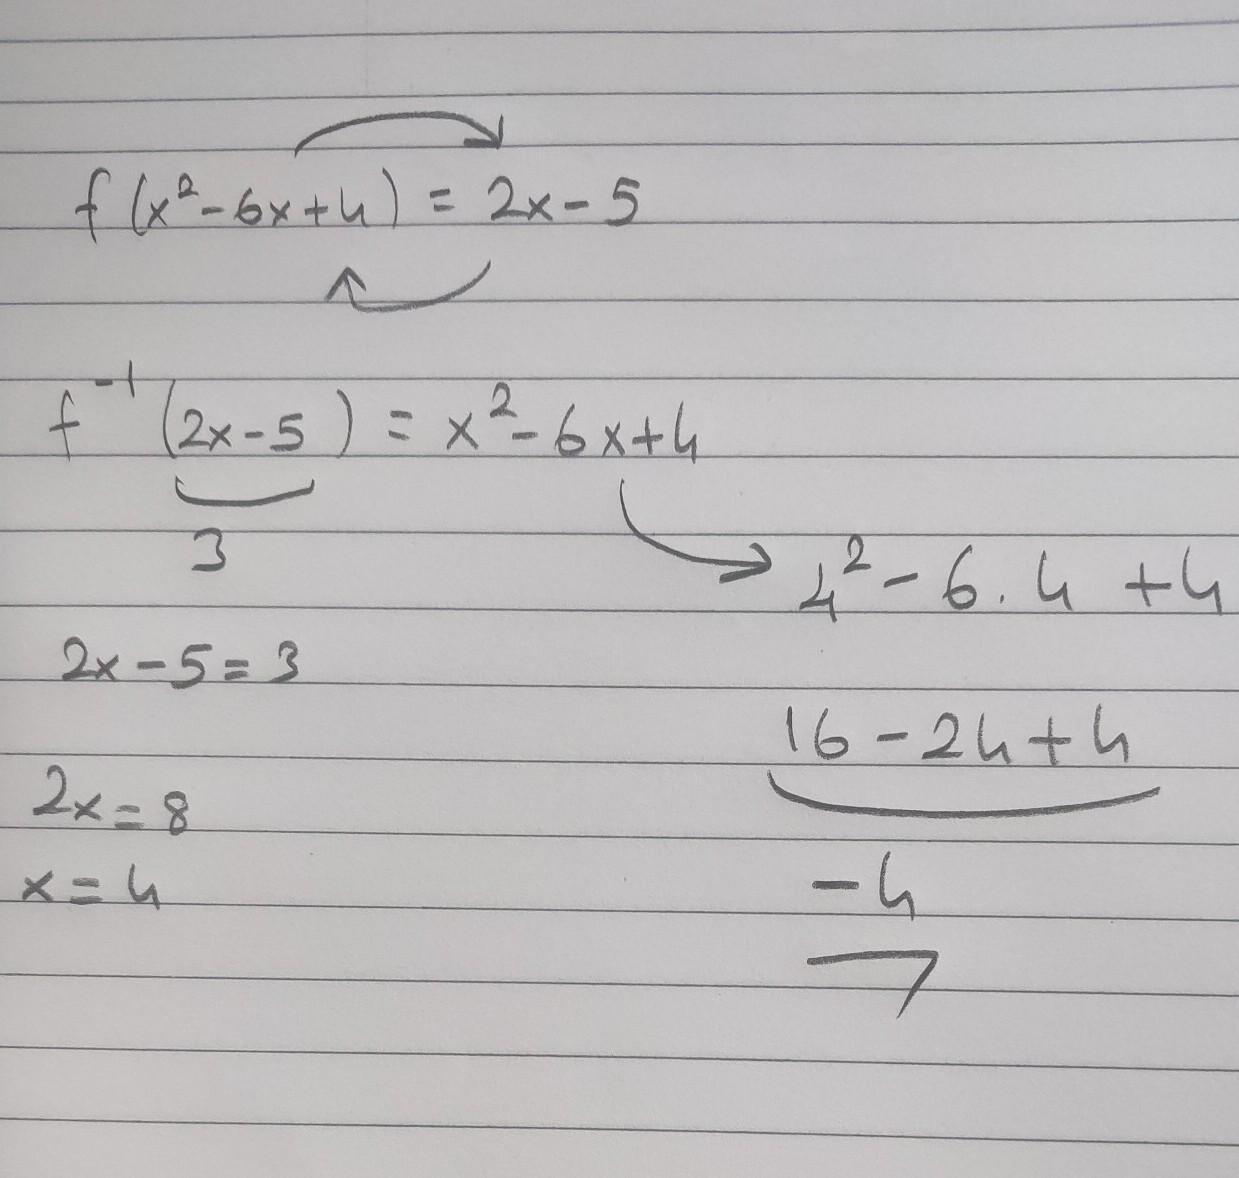 f(x²-6x+4) = 2x-5
f⁻¹(2x-5) = x²-6x+4
3
4²-6.4+4
2x-5=3
16-24+4
2x=8
x=4
-4